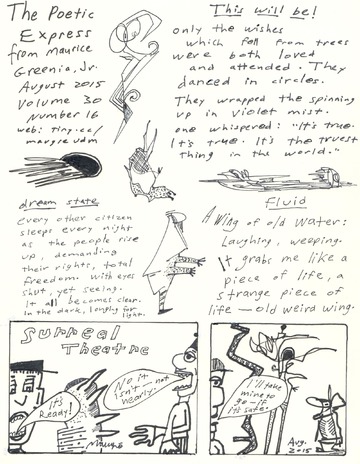 The Poetic
Express
from Maurice
Greenia, Jr.
August 2015
Volume 30
Number 16
web: tiny.cc/
margreudm
This will be!
only the wishes
which fell from trees
were both loved
and attended. They
danced in circles.
They wrapped the spinning
up in violet mist.
one whispered: "It's true.
It's true. It's the truest
thing in the world."
dream state
every other citizen
sleeps every night
as the people rise
up, demanding
their rights, total
freedom. with eyes
shut, yet seeing.
It all becomes clear.
In the dark, longing for
light.
Fluid
A wing of old water:
Laughing, weeping.
It grabs me like a
piece of life, a
strange piece of
life — old weird wing.
Surreal
Theatre
It's
Ready!
No it
isn't — not
nearly.
Maurice
I'll take
mine to
go — if
it's safe.
Aug.
2015